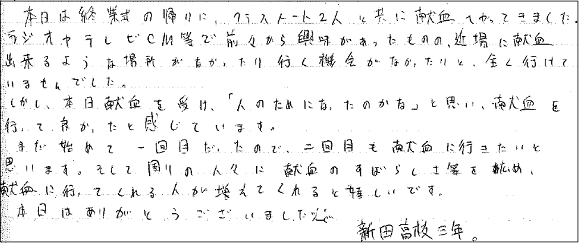 本日は終業式の帰りに、クラスメート2人と共に献血へやってきました。
ラジオやテレビCM等で前々から興味があったものの、近場に献血
出来るような場所がなかったり行く機会がなかったりと、全く行けて
いませんでした。
しかし、本日献血を受け、「人のためになったのかな」と思い、献血を
行って良かったと感じています。
まだ始めて一回目だったので、二回目も献血に行きたいと
思います。そして周りの人々に献血のすばらしさ等を広め、
献血に行ってくれる人が増えてくれると嬉しいです。
本日はありがとうございました
新田高校三年。